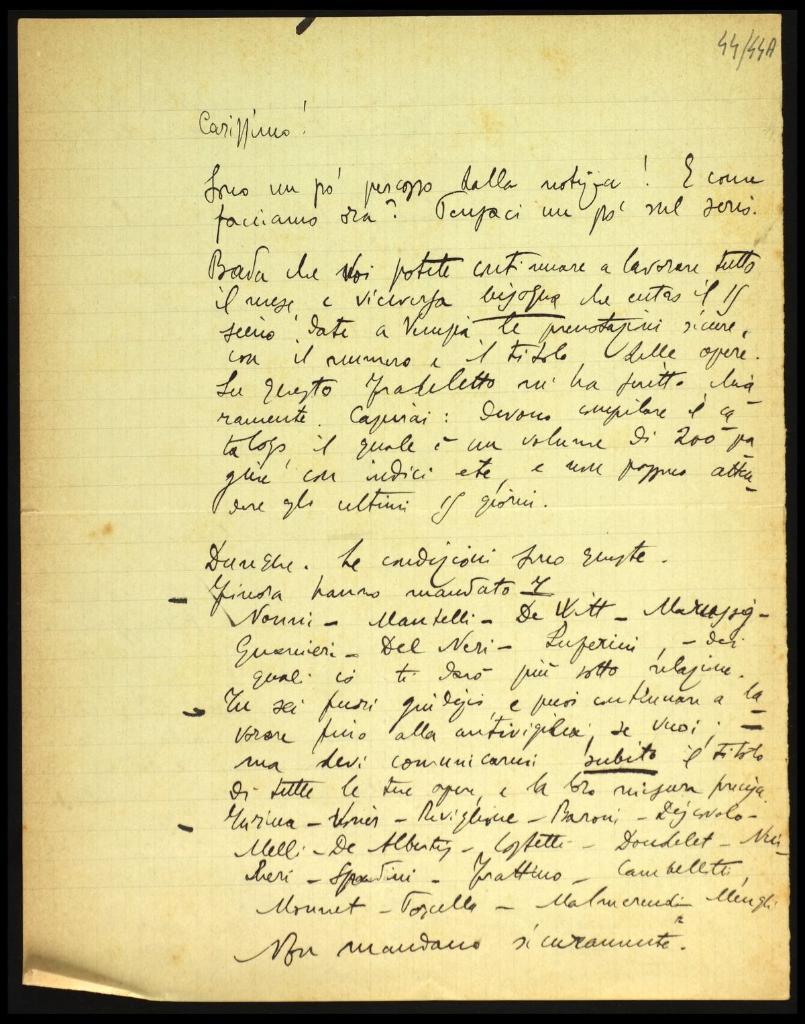 44/44A
Carissimo!
Sono un po' percosso dalla notizia! E come
facciamo ora? Pensaci un po' sul serio.
Bada che Voi potete continuare a lavorare tutto
il mese e viceversa bisogna che entro il 15
siano date a Venezia le prenotazioni sicure,
con il numero e il titolo delle opere.
Su questo Fradeletto mi ha scritto chia-
ramente. Capirai: devono compilare il ca-
talogo, il quale è un volume di 200 pa-
gine con indici etc, e non possono atten-
dere gli ultimi 15 giorni.
Dunque. Le condizioni sono queste.
Finora hanno mandato 7
Nonni - Mantelli - De Witt - Marussig -
Guarnieri - Del Neri - - dei
quali io ti darò più sotto relazione.
Tu sei fuori giudizio, e puoi continuare a la-
vorare fino alla antivigilia, se vuoi; -
ma devi comunicarmi subito il titolo
di tutte le tue opere, e la loro misura precisa.
- Reviglione - Baroni - Discovolo -
Melli - De Albertis - Costetti - Doudelet -
- Spadini - Frattino - Cambellotti
Monnet - - Malmerendi - Menghi
Non mandano sicuramente.